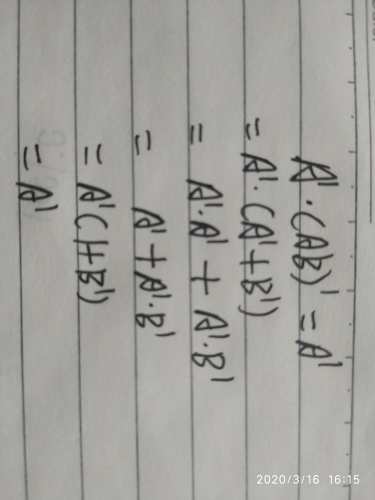 A'·(AB)' = A'
= A'·(A'+B')
= A'·A' + A'·B'
= A'+A'·B'
= A'(1+B')
= A'
2020/3/16 16:15